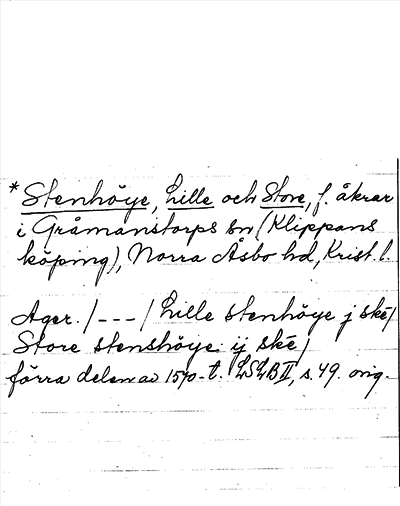 * Stenhöye, Lille och Store, f. åkrar
i Gråmanstorps sn (Klippans
köping), Norra Åsbo hd, Krist. l.
Ager. /---/ Lille stenhöye j ske/
Store stenshöye ij ske/
förra delen av 1570-t. LSLB II, s. 49. orig.